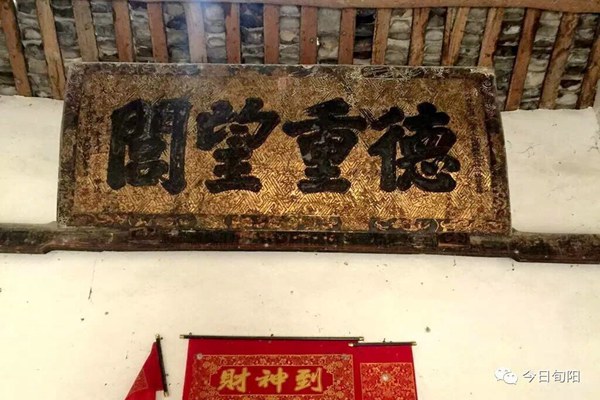 德重望閭
財神到
今日旬阳